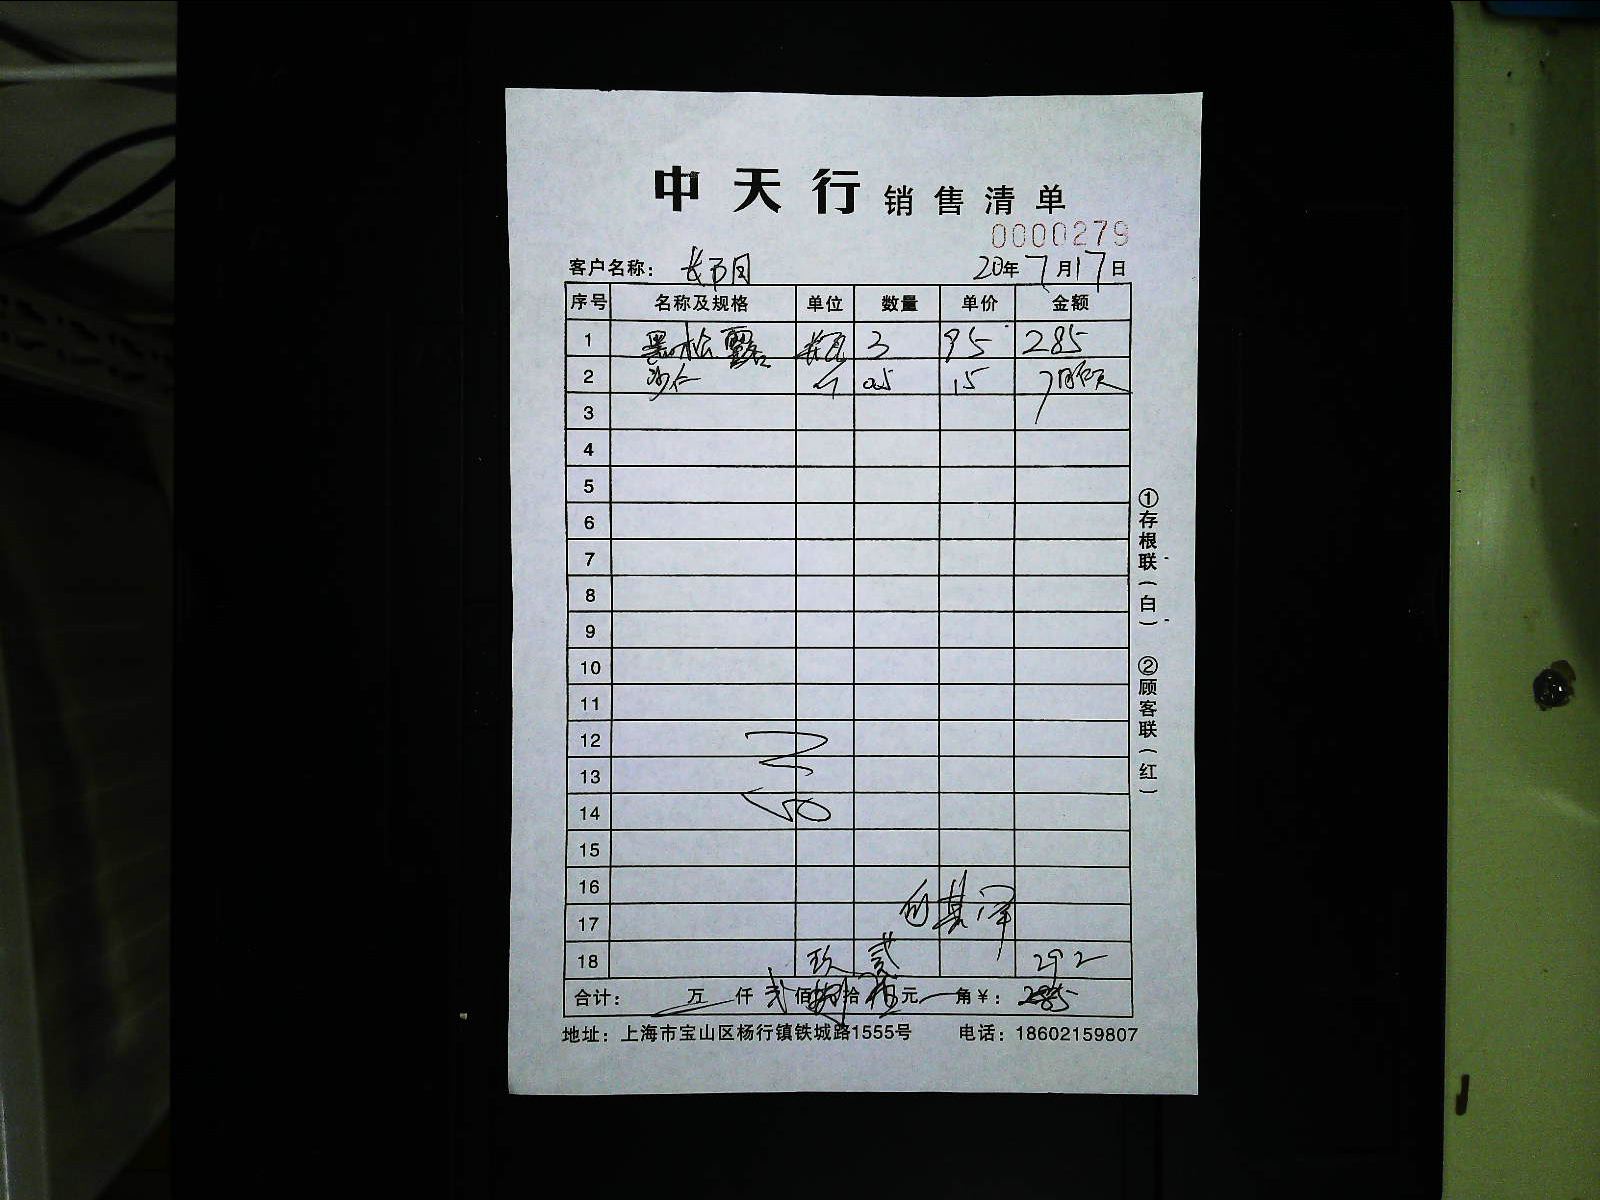 中天行 销售清单
0000279
客户名称： 20年7月17日
序号 名称及规格 单位 数量 单价 金额
1 黑松露 瓶 3 95 285
2 沙仁 斤 0.5 15 7
3
4
5
6
7
8
9
10
11
12
13
14
15
16
17
18 玖 贰 292
合计： 万 仟 贰 佰 拾 元 角￥： 285
地址：上海市宝山区杨行镇铁城路1555号 电话：18602159807
①存根联（白） ②顾客联（红）